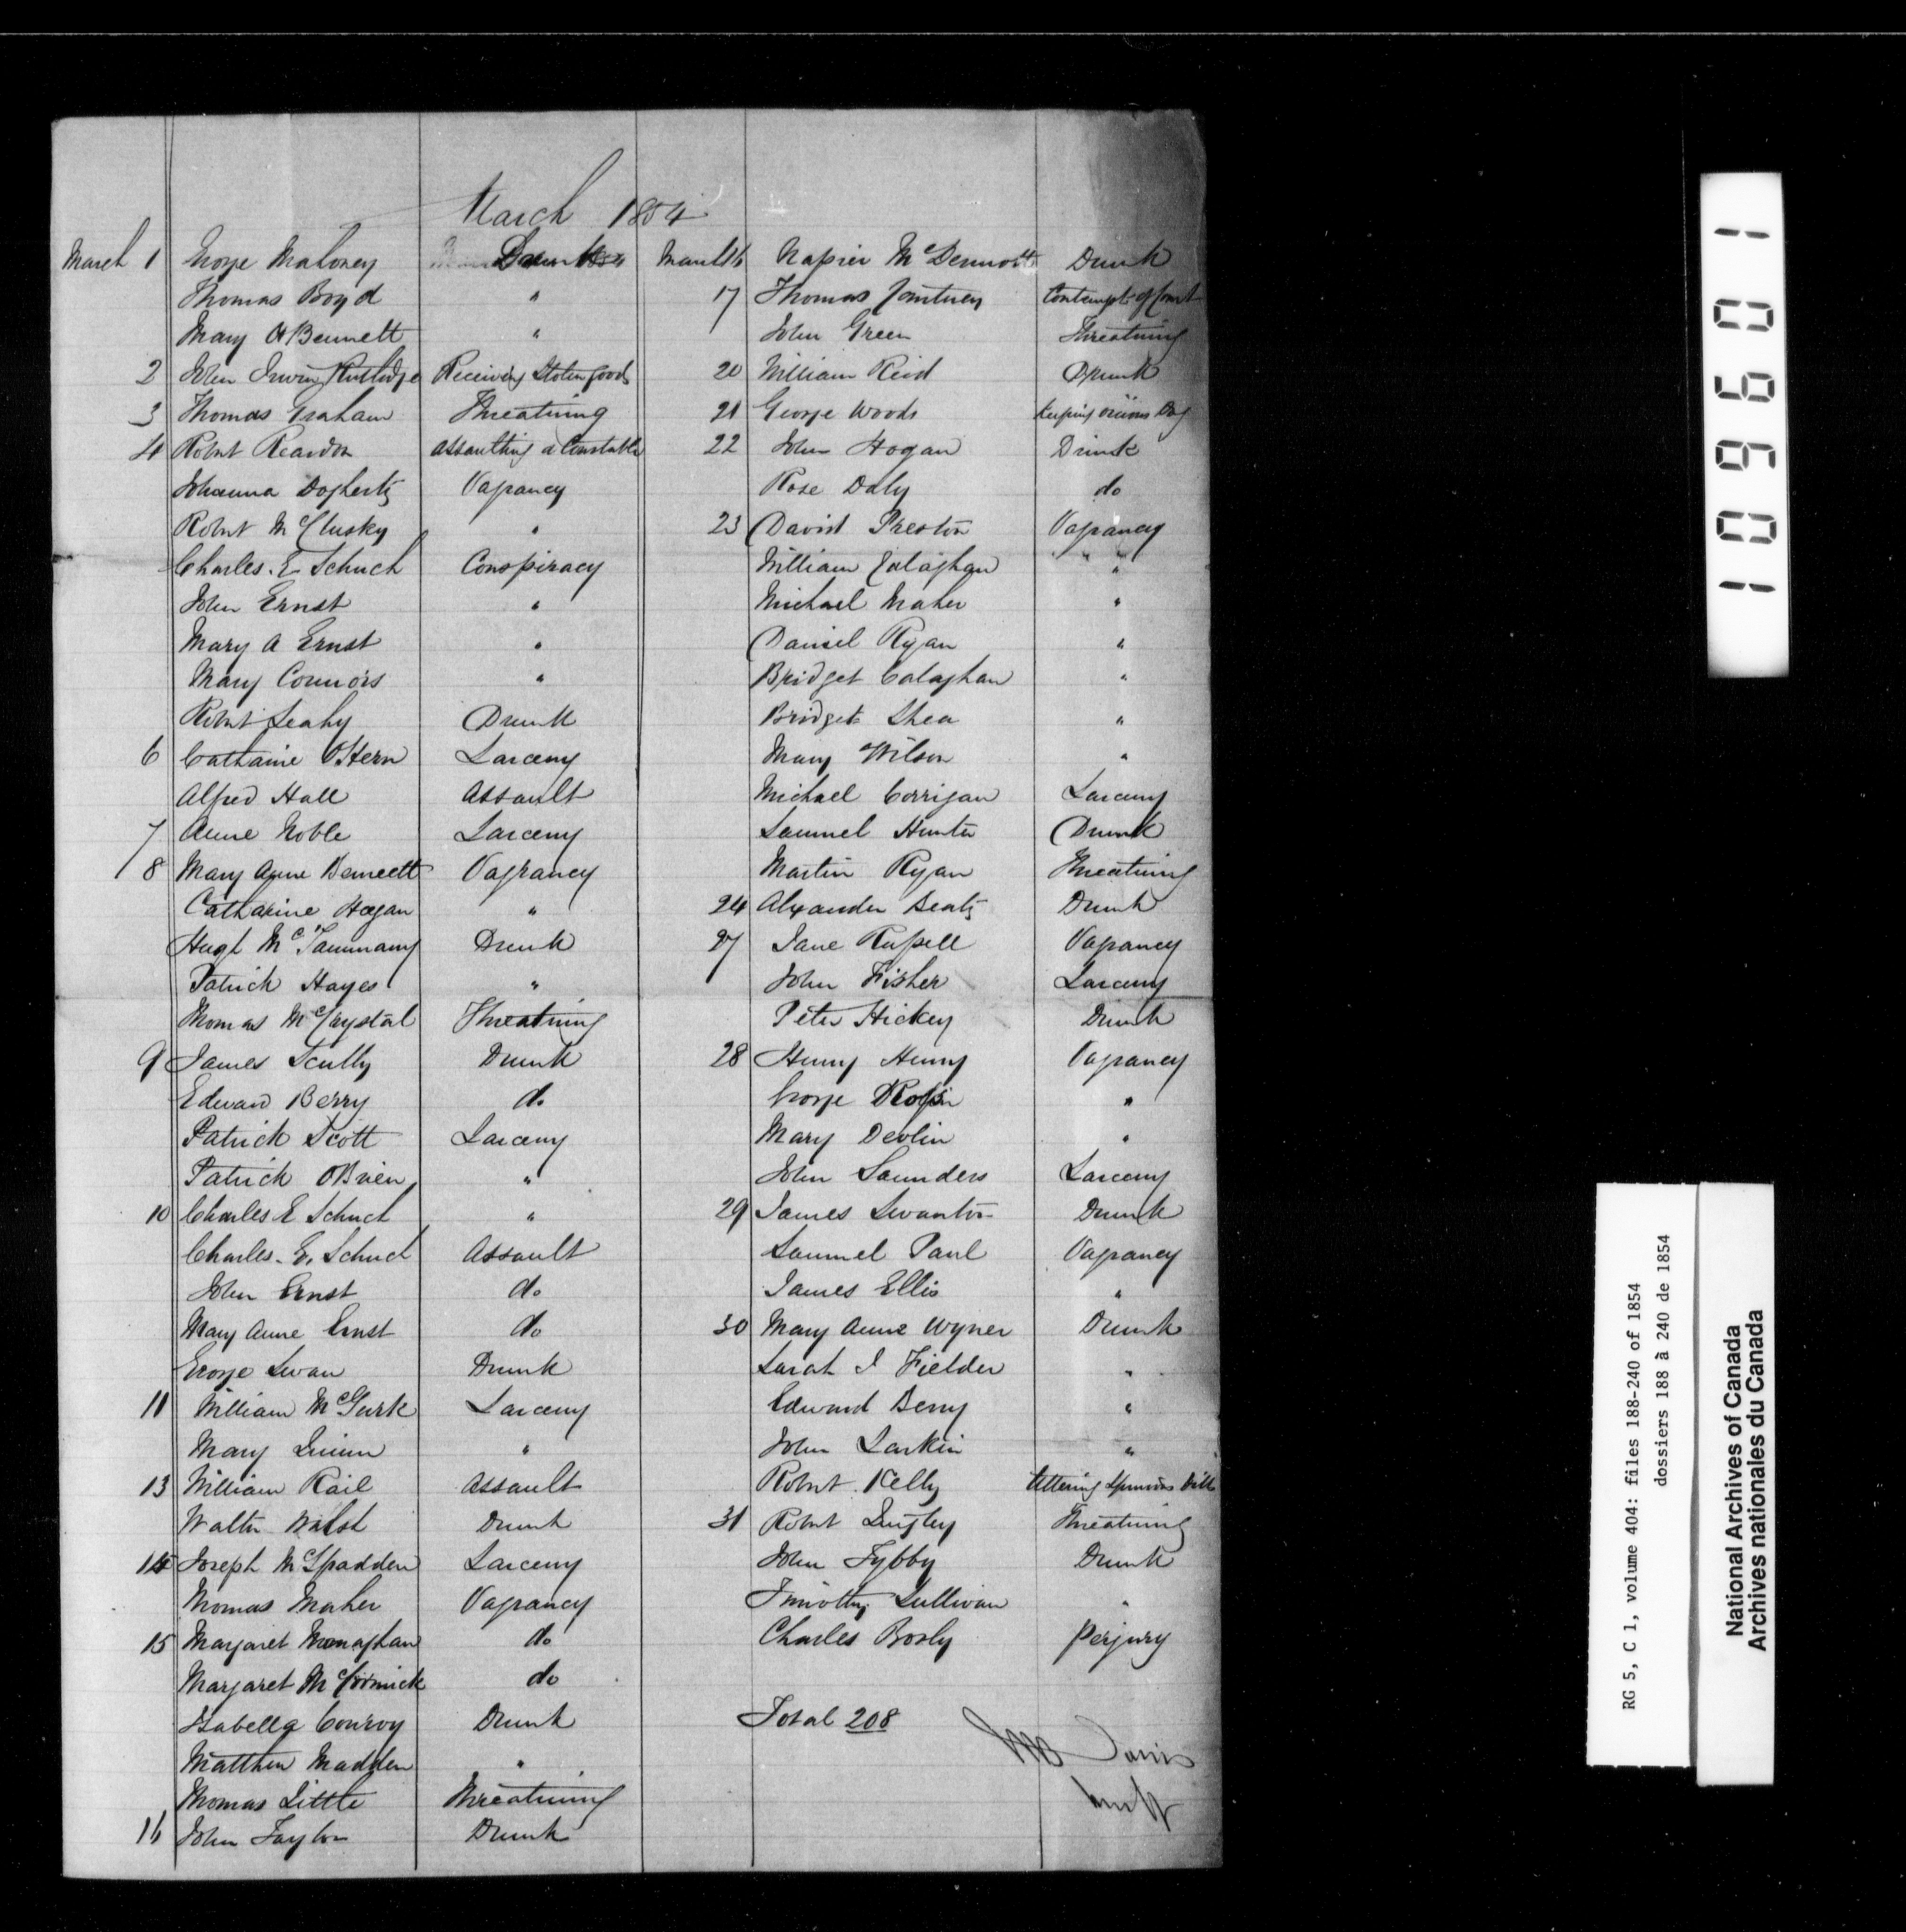 March 1854
March 1 George Mahoney Drunk
Thomas Boyd "
Mary A Bennett "
2 John Irwin Rutledge Receiving Stolen goods
3 Thomas Graham Threatning
4 Robert Reardon Assaulting a Constable
Johanna Dogherty Vagrancy
Robert McClusky "
Charles. E Schuch Conspiracy
John Ernst "
Mary A Ernst "
Mary Connors "
Robert Leahy Drunk
6 Catharine OHern Larceny
Alfred Hall Assault
7 Anne Noble Larceny
8 Mary Anne Bennett Vagrancy
Catharine Hogan "
Hugh McTammany Drunk
Patrick Hayes "
Thomas McCrystal Threatning
9 James Scully Drunk
Edward Berry do
Patrick Scott Larceny
Patrick OBrien "
10 Charles E Schuch "
Charles. E. Schuch Assault
John Ernst do
Mary Anne Ernst do
George Swan Drunk
11 William McGurk Larceny
Mary Quinn "
13 William Rail Assault
Walter Walsh Drunk
14 Joseph McSpadden Larceny
Thomas Maher Vagrancy
15 Margaret Monaghan do
Margaret McCormick do
Isabella Conroy Drunk
Matthew Madden "
Thomas Little Threatining
16 John Taylor Drunk
March 16 Napier McDermott Drunk
17 Thomas Courtney Contempt of Court
John Green Threatning
20 William Reid Drunk
21 George Woods Keeping vicious Dog
22 John Hogan Drunk
Rose Daly do
23 David Preston Vagrancy
William Calaghan "
Michael Maher "
Daniel Ryan "
Bridget Calaghan "
Bridget Shea "
Mary Wilson "
Michael Corrigan Larceny
Samuel Hunter Drunk
Martin Ryan Threatning
24 Alexander Beaty Drunk
27 Jane Russell Vagrancy
John Fisher Larceny
Peter Hickey Drunk
28 Henry Henry Vagrancy
George "
Mary Devlin "
John Saunders Larceny
29 James Swanton Drunk
Samuel Paul Vagrancy
James Ellis "
30 Mary Anne Wyner Drunk
Sarah J Fielder "
Edward Berry "
John Larkin "
Robert Kelly Uttering Spurious Bills
31 Robert Quigley Threatning
John Tybby Drunk
Timothy Sullivan "
Charles Bosly Perjury
Total 208
109601
RG 5, C 1, volume 404: files 188-240 of 1854
dossiers 188 à 240 de 1854
National Archives of Canada
Archives nationales du Canada